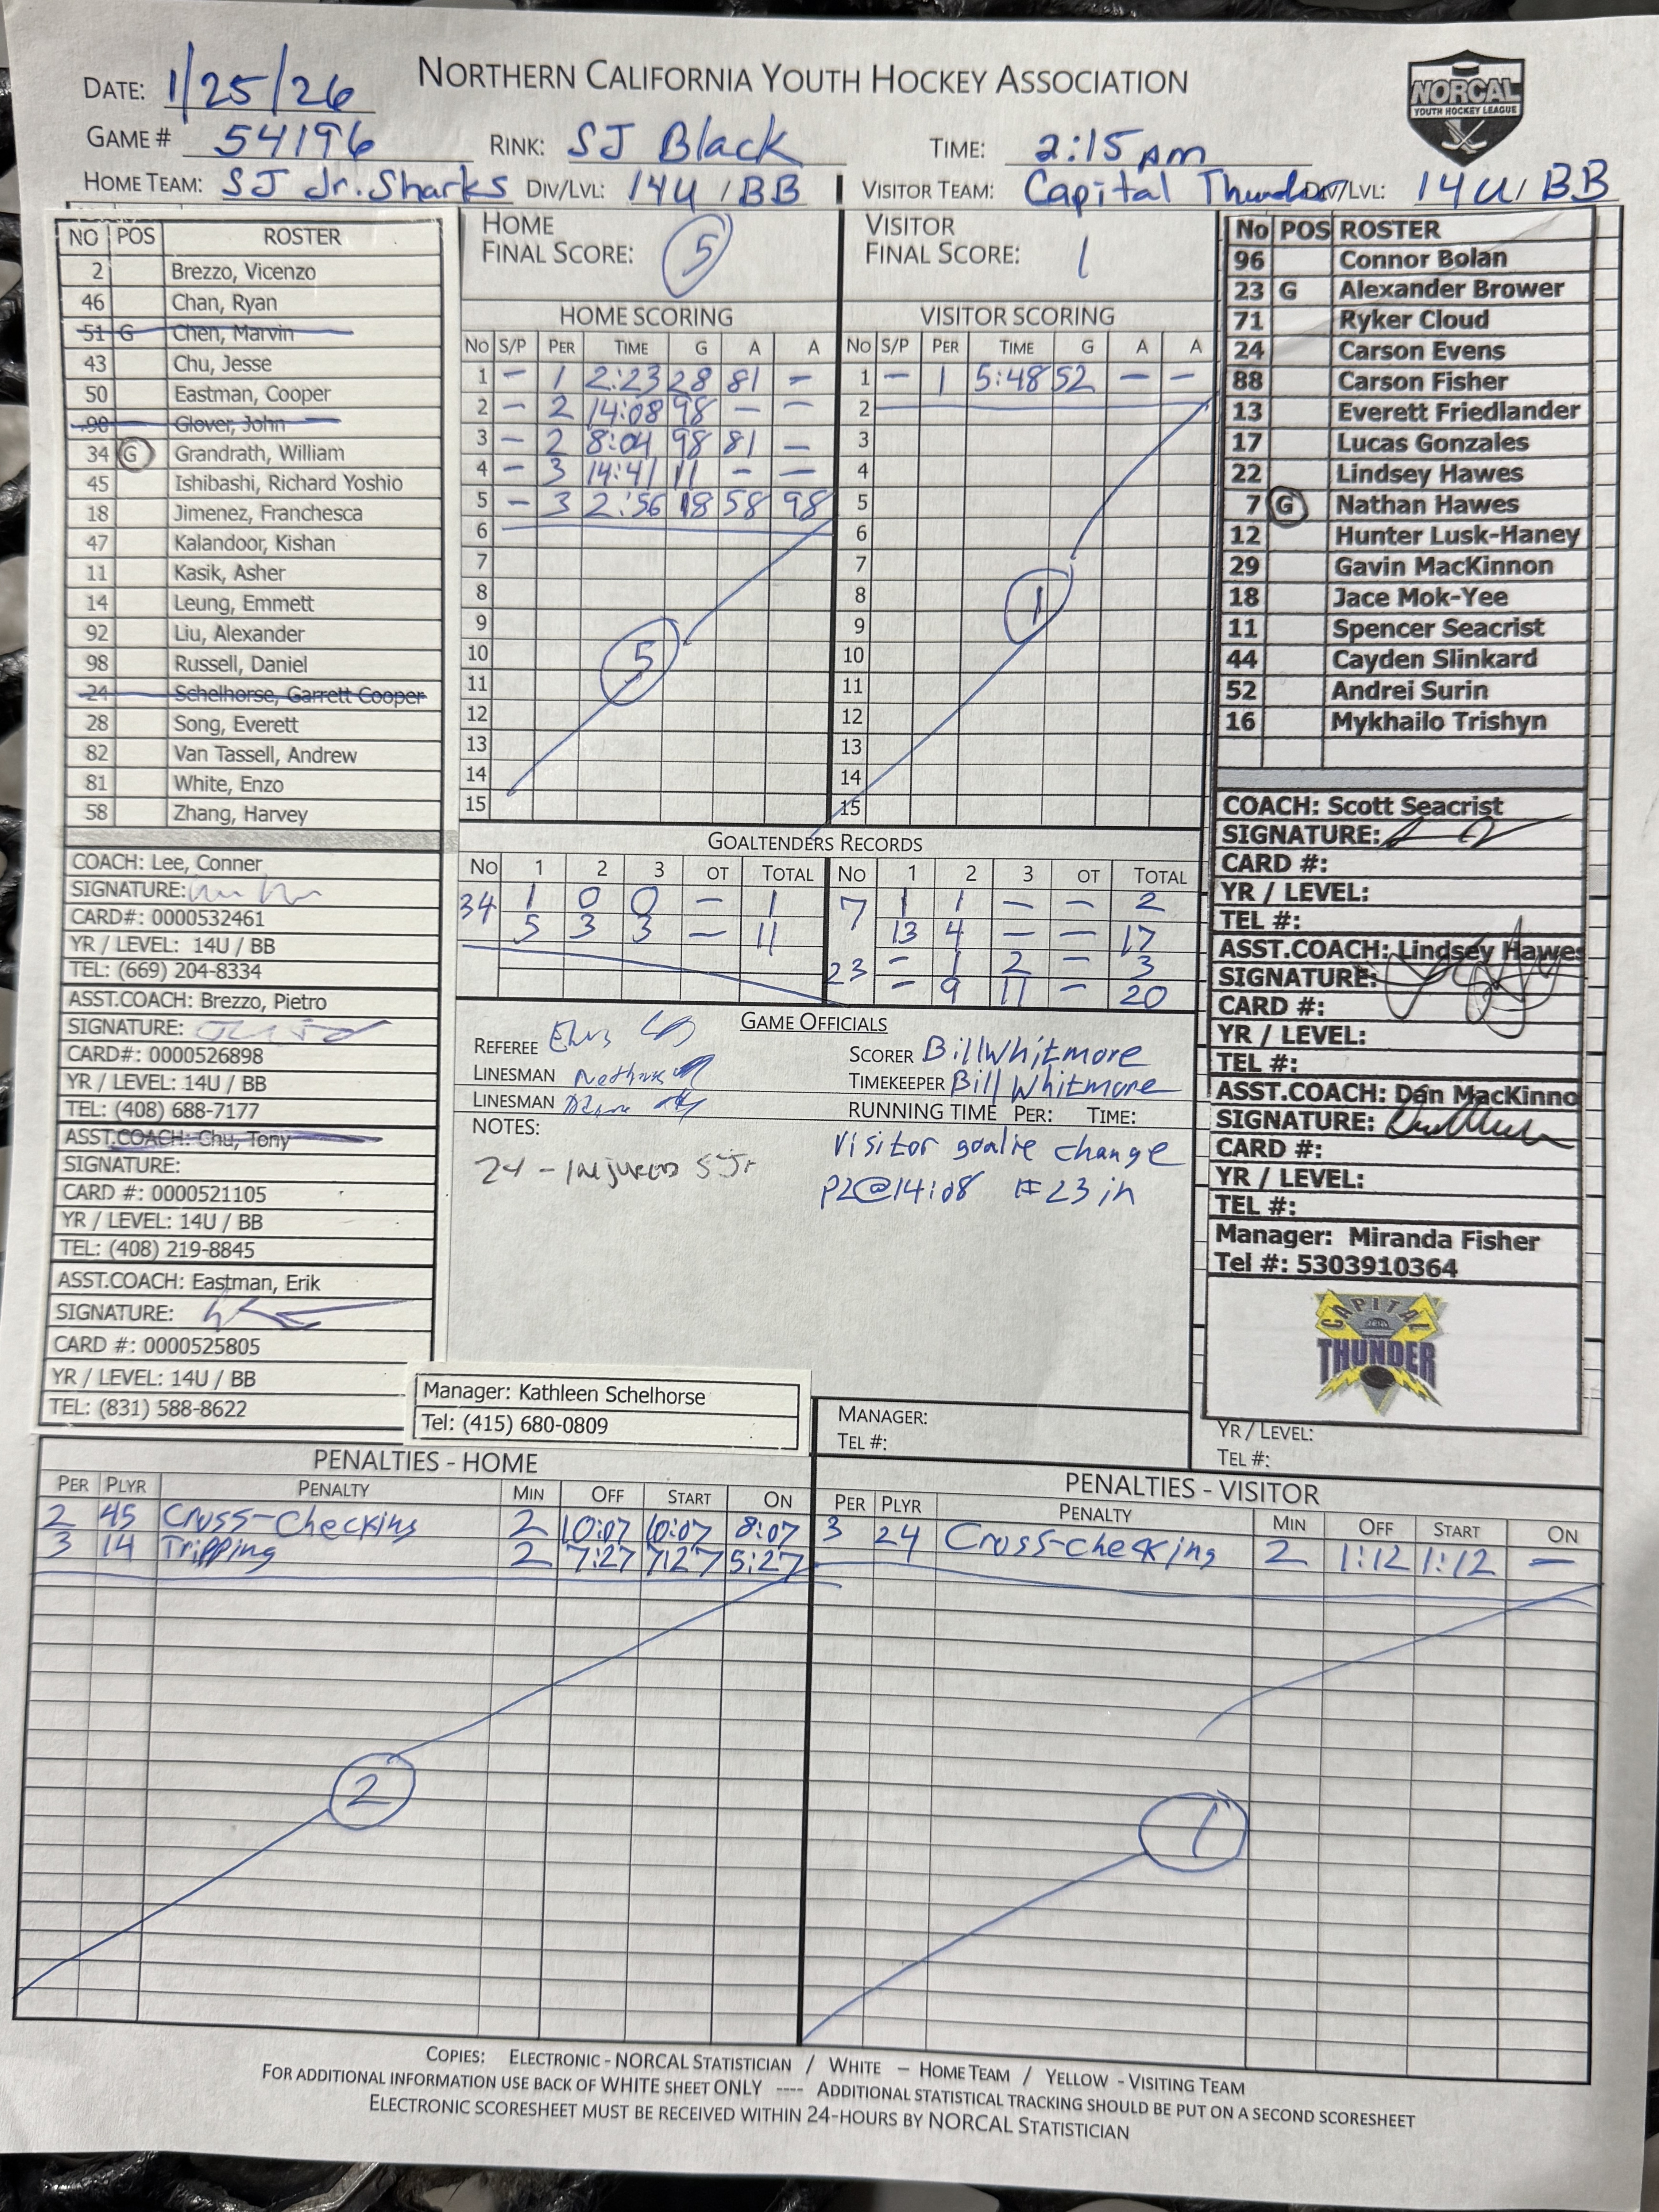 NORTHERN CALIFORNIA YOUTH HOCKEY ASSOCIATION
NORCAL
YOUTH HOCKEY LEAGUE
DATE: 1/25/26
GAME # 54196 RINK: SJ Black TIME: 2:15 pm
HOME TEAM: SJ Jr. Sharks DIV/LVL: 14U / BB VISITOR TEAM: Capital Thunder DIV/LVL: 14U / BB
NO POS ROSTER
2 Brezzo, Vicenzo
46 Chan, Ryan
51 G Chen, Marvin
43 Chu, Jesse
50 Eastman, Cooper
90 Glover, John
34 G Grandrath, William
45 Ishibashi, Richard Yoshio
18 Jimenez, Franchesca
47 Kalandoor, Kishan
11 Kasik, Asher
14 Leung, Emmett
92 Liu, Alexander
98 Russell, Daniel
24 Schelhorse, Garrett Cooper
28 Song, Everett
82 Van Tassell, Andrew
81 White, Enzo
58 Zhang, Harvey
COACH: Lee, Conner
SIGNATURE:
CARD#: 0000532461
YR / LEVEL: 14U / BB
TEL: (669) 204-8334
ASST.COACH: Brezzo, Pietro
SIGNATURE:
CARD#: 0000526898
YR / LEVEL: 14U / BB
TEL: (408) 688-7177
ASST.COACH: Chu, Tony
SIGNATURE:
CARD #: 0000521105
YR / LEVEL: 14U / BB
TEL: (408) 219-8845
ASST.COACH: Eastman, Erik
SIGNATURE:
CARD #: 0000525805
YR / LEVEL: 14U / BB
TEL: (831) 588-8622
HOME
FINAL SCORE: 5
VISITOR
FINAL SCORE: 1
HOME SCORING
NO S/P PER TIME G A A
1 - 1 2:23 28 81 -
2 - 2 14:08 98 - -
3 - 2 8:04 98 81 -
4 - 3 14:41 11 - -
5 - 3 2:56 18 58 98
6
7
8
9
10
11
12
13
14
15
5
VISITOR SCORING
NO S/P PER TIME G A A
1 - 1 5:48 52 - -
2
3
4
5
6
7
8
9
10
11
12
13
14
15
1
GOALTENDERS RECORDS
NO 1 2 3 OT TOTAL NO 1 2 3 OT TOTAL
34 1 0 0 - 1 7 1 1 - - 2
5 3 3 - 11 13 4 - - 17
23 - 1 2 - 3
- 9 11 - 20
GAME OFFICIALS
REFEREE
LINESMAN
LINESMAN
SCORER Bill Whitmore
TIMEKEEPER Bill Whitmore
RUNNING TIME PER: TIME:
NOTES:
24 - Injured SJr
Visitor goalie change
P2@14:08 #23 in
Manager: Kathleen Schelhorse
Tel: (415) 680-0809
MANAGER:
TEL #:
No POS ROSTER
96 Connor Bolan
23 G Alexander Brower
71 Ryker Cloud
24 Carson Evens
88 Carson Fisher
13 Everett Friedlander
17 Lucas Gonzales
22 Lindsey Hawes
7 G Nathan Hawes
12 Hunter Lusk-Haney
29 Gavin MacKinnon
18 Jace Mok-Yee
11 Spencer Seacrist
44 Cayden Slinkard
52 Andrei Surin
16 Mykhailo Trishyn
COACH: Scott Seacrist
SIGNATURE:
CARD #:
YR / LEVEL:
TEL #:
ASST.COACH: Lindsey Hawes
SIGNATURE:
CARD #:
YR / LEVEL:
TEL #:
ASST.COACH: Dan MacKinno
SIGNATURE:
CARD #:
YR / LEVEL:
TEL #:
Manager: Miranda Fisher
Tel #: 5303910364
CAPITAL
THUNDER
YR / LEVEL:
TEL #:
PENALTIES - HOME
PER PLYR PENALTY MIN OFF START ON
2 45 Cross-Checking 2 10:07 10:07 8:07
3 14 Tripping 2 7:27 7:27 5:27
2
PENALTIES - VISITOR
PER PLYR PENALTY MIN OFF START ON
3 24 Cross-checking 2 1:12 1:12 -
1
COPIES: ELECTRONIC - NORCAL STATISTICIAN / WHITE – HOME TEAM / YELLOW - VISITING TEAM
FOR ADDITIONAL INFORMATION USE BACK OF WHITE SHEET ONLY ---- ADDITIONAL STATISTICAL TRACKING SHOULD BE PUT ON A SECOND SCORESHEET
ELECTRONIC SCORESHEET MUST BE RECEIVED WITHIN 24-HOURS BY NORCAL STATISTICIAN